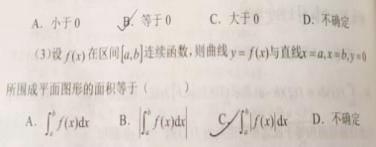 A. 小于0 B. 等于0 C. 大于0 D. 不确定
(3)设 f(x) 在区间[a,b]连续函数,则曲线 y = f(x)与直线x=a,x=b,y=0
所围成平面图形的面积等于( )
A. ∫_a^b f(x)dx B. |∫_a^b f(x)dx| C. ∫_a^b |f(x)|dx D. 不确定